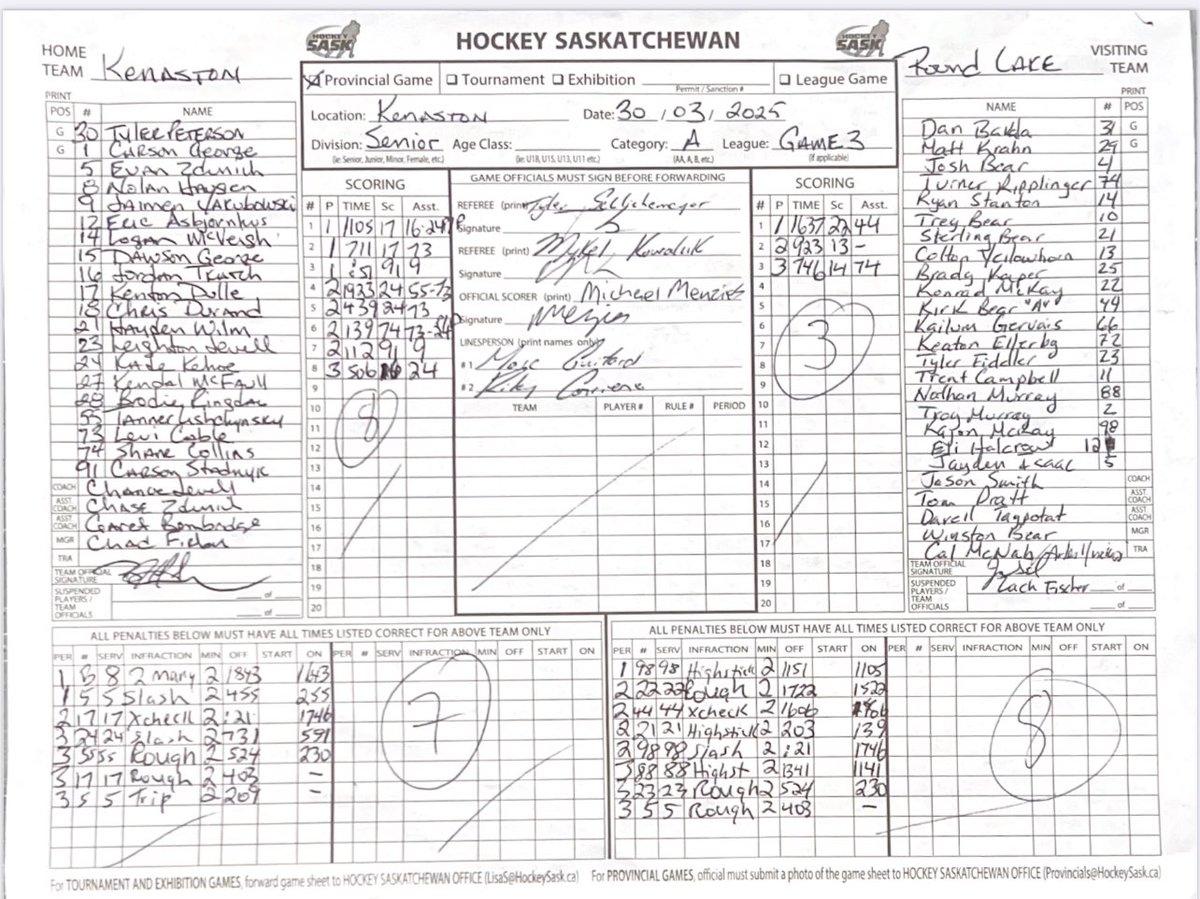 HOCKEY SASK
HOCKEY SASKATCHEWAN
HOCKEY SASK
HOME TEAM Kenaston
VISITING TEAM Round Lake
☑ Provincial Game ☐ Tournament ☐ Exhibition Permit / Sanction # ☐ League Game
Location: Kenaston Date: 30 / 03 / 2025
Division: Senior Age Class: Category: A League: GAME 3
(ie: Senior, Junior, Minor, Female, etc.) (ie: U18, U15, U13, U11 etc.) (AA, A, B, etc.) (if applicable)
PRINT
POS # NAME
G 30 Tyler Peterson
G 1 Carson George
5 Evan Zdunich
8 Nolan
9
12 Eric Asbjornhus
14 Logan McVeigh
15 Dawson George
16 Jordan
17 Kenton Dulle
18 Chris Durand
21 Hayden Wilm
23 Leighton Jevell
24 Kade Kehoe
27 Kendal McFaull
28 Bodie
55 Tanner Lishchynsky
73 Levi Cable
74 Shane Collins
91 Carson Stadnyk
COACH Chance Jevell
ASST. COACH Chase Zdunich
ASST. COACH Garet Bembridge
MGR Chad
TRA
TEAM OFFICIAL SIGNATURE
SUSPENDED PLAYERS / TEAM OFFICIALS
of
of
SCORING
# P TIME Sc Asst.
1 1 1105 17 16-24
2 1 711 17 73
3 1 :51 91 9
4 2 1923 24 55-73
5 2 439 24 73
6 2 139 74 73-24
7 2 112 91 9
8 3 506 16 24
9
10
11
12
13
14
15
16
17
18
19
20
8
GAME OFFICIALS MUST SIGN BEFORE FORWARDING
REFEREE (print) Tyler
Signature
REFEREE (print) Mykel Kowaluk
Signature
OFFICIAL SCORER (print) Michael Menzies
Signature
LINESPERSON (print names only)
#1
#2 Riley
TEAM PLAYER # RULE # PERIOD
SCORING
# P TIME Sc Asst.
1 1 1637 22 44
2 2 923 13 -
3 3 746 14 74
4
5
6
7
8
9
10
11
12
13
14
15
16
17
18
19
20
3
PRINT
NAME # POS
Dan 31 G
Matt Krahn 29 G
Josh Bear 4
Turner Ripplinger 74
Ryan Stanton 14
Trey Bear 10
Sterling Bear 21
Colton Yellowhorn 13
Brady Kaper 25
Konrad McKay 22
Kirk Bear "AV" 49
Kailum Gervais 66
Keaton Ellerby 72
Tyler Fiddler 23
Trent Campbell 11
Nathan Murray 88
Troy Murray 2
Kajon McKay 98
Eli Halcrow 12
Jayden Isaac 5
Jason Smith COACH
Tom Pratt ASST. COACH
Darell Tagpotat ASST. COACH
Winston Bear MGR
Cal McNab TRA
TEAM OFFICIAL SIGNATURE
SUSPENDED PLAYERS / TEAM OFFICIALS
Zach Fischer of
of
ALL PENALTIES BELOW MUST HAVE ALL TIMES LISTED CORRECT FOR ABOVE TEAM ONLY
PER # SERV INFRACTION MIN OFF START ON PER # SERV INFRACTION MIN OFF START ON
1 B 8 2 many 2 1843 1643
1 5 5 Slash 2 455 255
2 17 17 Xcheck 2 :21 1746
3 24 24 Slash 2 731 591
3 55 55 Rough 2 524 230
3 17 17 Rough 2 403 –
3 5 5 Trip 2 209 –
7
ALL PENALTIES BELOW MUST HAVE ALL TIMES LISTED CORRECT FOR ABOVE TEAM ONLY
PER # SERV INFRACTION MIN OFF START ON PER # SERV INFRACTION MIN OFF START ON
1 98 98 Highstick 2 1151 1105
2 22 22 Rough 2 1722 1522
2 44 44 Xcheck 2 1606
2 21 21 Highstick 2 203 139
2 98 98 Slash 2 :21 1746
3 88 88 Highst 2 1341 1141
3 23 23 Rough 2 524 230
3 5 5 Rough 2 403 –
8
For TOURNAMENT AND EXHIBITION GAMES, forward game sheet to HOCKEY SASKATCHEWAN OFFICE (LisaS@HockeySask.ca) For PROVINCIAL GAMES, official must submit a photo of the game sheet to HOCKEY SASKATCHEWAN OFFICE (Provincials@HockeySask.ca)